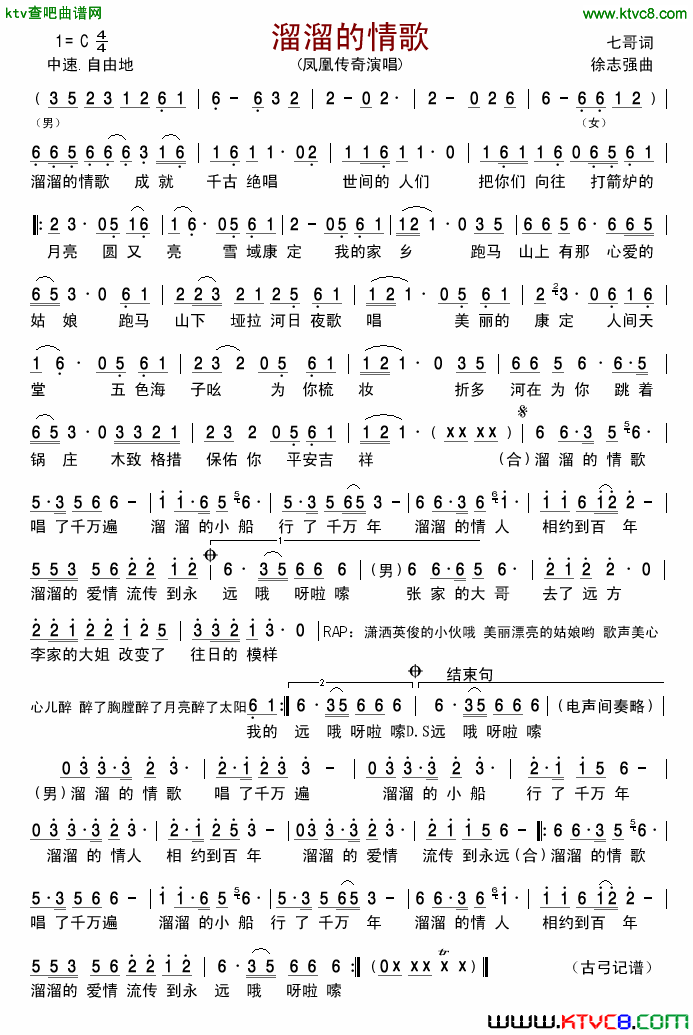 ktv查吧曲谱网
http://www.ktvc8.com
1= C 4/4
溜溜的情歌
七哥词
中速.自由地
(凤凰传奇演唱)
徐志强曲
( 3 5 2 3 1 2 6 1 | 6 - 6 3 2 | 2 - 1 0 2 | 2 - 0 2 6 | 6 - 6 6 1 2 )
(男) (女)
6 6 5 6 6 6 3 1 6 | 1 6 1 1 · 0 2 | 1 1 6 1 1 1 · 0 | 1 6 1 1 6 0 6 5 6 1
溜溜的情歌 成就 千古绝唱 世间的人们 把你们向往 打箭炉的
‖: 2 3 · 0 5 1 6 | 1 6 · 0 5 6 1 | 2 - · 0 5 6 1 | 1 2 1 · 0 3 5 | 6 6 5 6 · 6 6 5
月亮 圆又 亮 雪域康定 我的家乡 跑马山上有那心爱的
6 5 3 · 0 6 1 | 2 2 3 2 2 5 6 1 | 1 2 1 · 0 5 6 1 | 2 3 · 0 6 1 6
姑娘 跑马 山下 垭拉河日夜歌 唱 美丽的 康定 人间天
1 6 · 0 5 6 1 | 2 3 2 0 5 6 1 | 1 2 1 · 0 3 5 | 6 6 5 6 · 6 · 5
堂 五色海 子吆 为你梳 妆 折多 河在为你 跳着
6 5 3 · 0 3 3 2 1 | 2 3 2 0 5 6 1 | 1 2 1 · ( x x x x ) | 6 6 · 3 5 6 ·
锅庄 木致格措 保佑你 平安吉 祥 (合)溜溜的情歌
5 · 3 5 6 6 · | 1 1 · 6 5 6 · | 5 · 3 5 6 5 6 · | 6 6 · 3 6 1 · | 1 1 6 1 2 2
唱了千万遍 溜溜的小船 行了千万年 溜溜的情人 相约到百年
1
5 5 3 5 6 2 2 1 2 | 6 · 3 5 6 6 6 | (男) 6 6 · 6 5 6 · | 2 1 2 2 · 0
溜溜的爱情流传到永 远哦呀啦嗦 张家的大哥 去了远方
2 2 1 2 2 1 2 2 | 1 1 2 1 3 · 0 | RAP: 潇洒英俊的小伙哦 美丽漂亮的姑娘哟 歌声美心
李家的大姐改变了 往日的模样
2 结束句
心儿醉 醉了胸膛醉了月亮醉了太阳 6 1 :‖ 6 · 3 5 6 6 6 | 6 · 3 5 6 6 6 | (电声间奏略) |
我的 远哦呀啦嗦D.S远哦呀啦嗦
0 3 3 · 3 2 3 · | 2 · 1 2 3 3 · | 0 3 3 · 3 2 3 · | 2 · 1 1 5 6 -
(男)溜溜的情歌 唱了千万遍 溜溜的小船 行了千万年
0 3 3 · 3 2 3 · | 2 · 1 2 5 3 - | 0 3 3 · 3 2 3 · | 2 1 1 5 6 - ‖: 6 6 · 3 5 6 ·
溜溜的情人 相约到百年 溜溜的爱情 流传到永远(合)溜溜的情歌
5 · 3 5 6 6 · | 1 1 · 6 5 6 · | 5 · 3 5 6 5 6 · | 6 6 · 3 6 1 · | 1 1 6 1 2 2
唱了千万遍 溜溜的小船 行了千万年 溜溜的情人 相约到百年
5 5 3 5 6 2 2 1 2 | 6 · 3 5 6 6 6 :‖ ( 0 x x x x x ) ‖ (古弓记谱)
溜溜的爱情流传到永 远哦 呀啦嗦
www.KTVC8.com